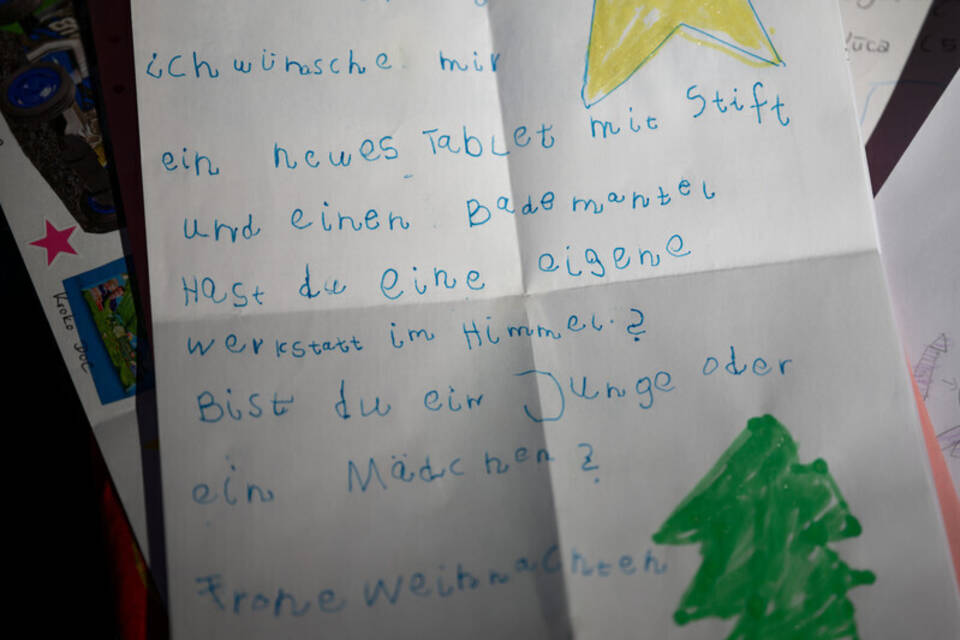 ichwünsche mir
ein neues Tablet mit Stift
und einen Bademantel
Hast du eine eigene
werkstatt im Himmel.?
Bist du ein Junge oder
ein Mädchen?
Frohe weihnachten
Kroko Doc
Luca